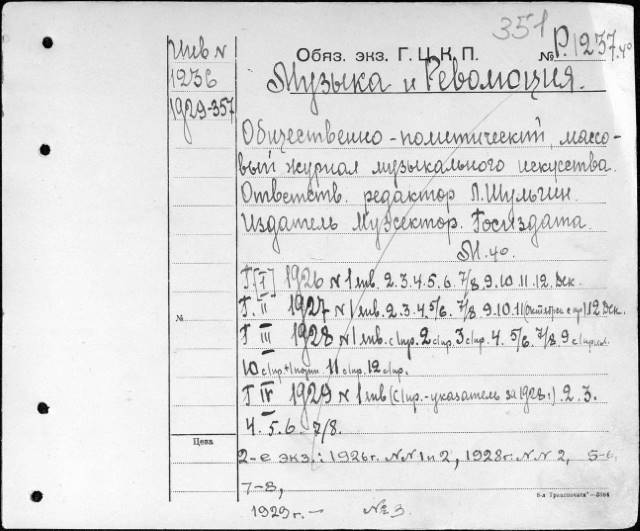 351
Инв N
1236
1929-357
Обяз. экз. Г. Ц. К. П.
№ Р.1237.40
Музыка и Революция.
Общественно-политический, массо-
вый журнал музыкального искусства.
Ответств. редактор Л. Шульгин.
Издатель Музсектор. Госиздата.
М. 4о.
Г [I] 1926 N 1 янв. 2. 3. 4. 5. 6. 7/8. 9. 10. 11. 12. Дек.
Г. II 1927 N 1 янв. 2. 3. 4. 5/6. 7/8. 9. 10. 11 (октябрь с пр) 12 Дек.
№
Г III 1928 N 1 янв. с/пр. 2 с/пр. 3 с/пр. 4. 5/6. 7/8. 9 с/пр.
10 с/пр. 11 с/пр. 12 с/пр.
Г IV 1929 N 1 янв (с/пр. - указатель за 1928г.) 2. 3.
4. 5. 6. 7/8.
Цена
2-е экз.: 1926г. N N 1 и 2, 1928г. N N 2, 5-6,
7-8,
6-я Транспечати—3564
1929г. — №3